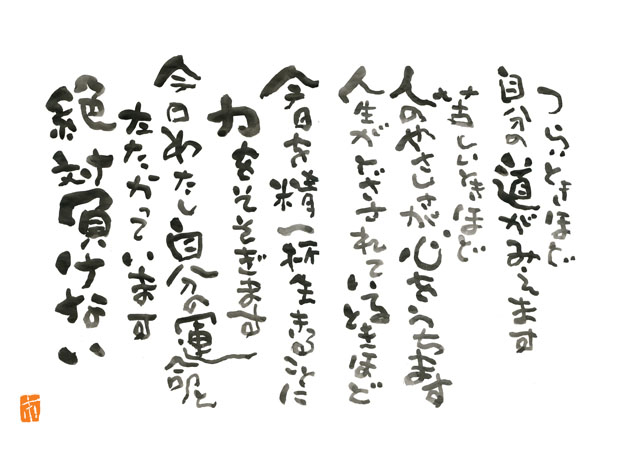 つらいときほど
自分の道がみえます
苦しいときほど
人のやさしさが心をうちます
人生がとざされているときほど
今日を精一杯生きることに
力をそそぎます
今日わたし自分の運命と
たたかっています
絶対負けない